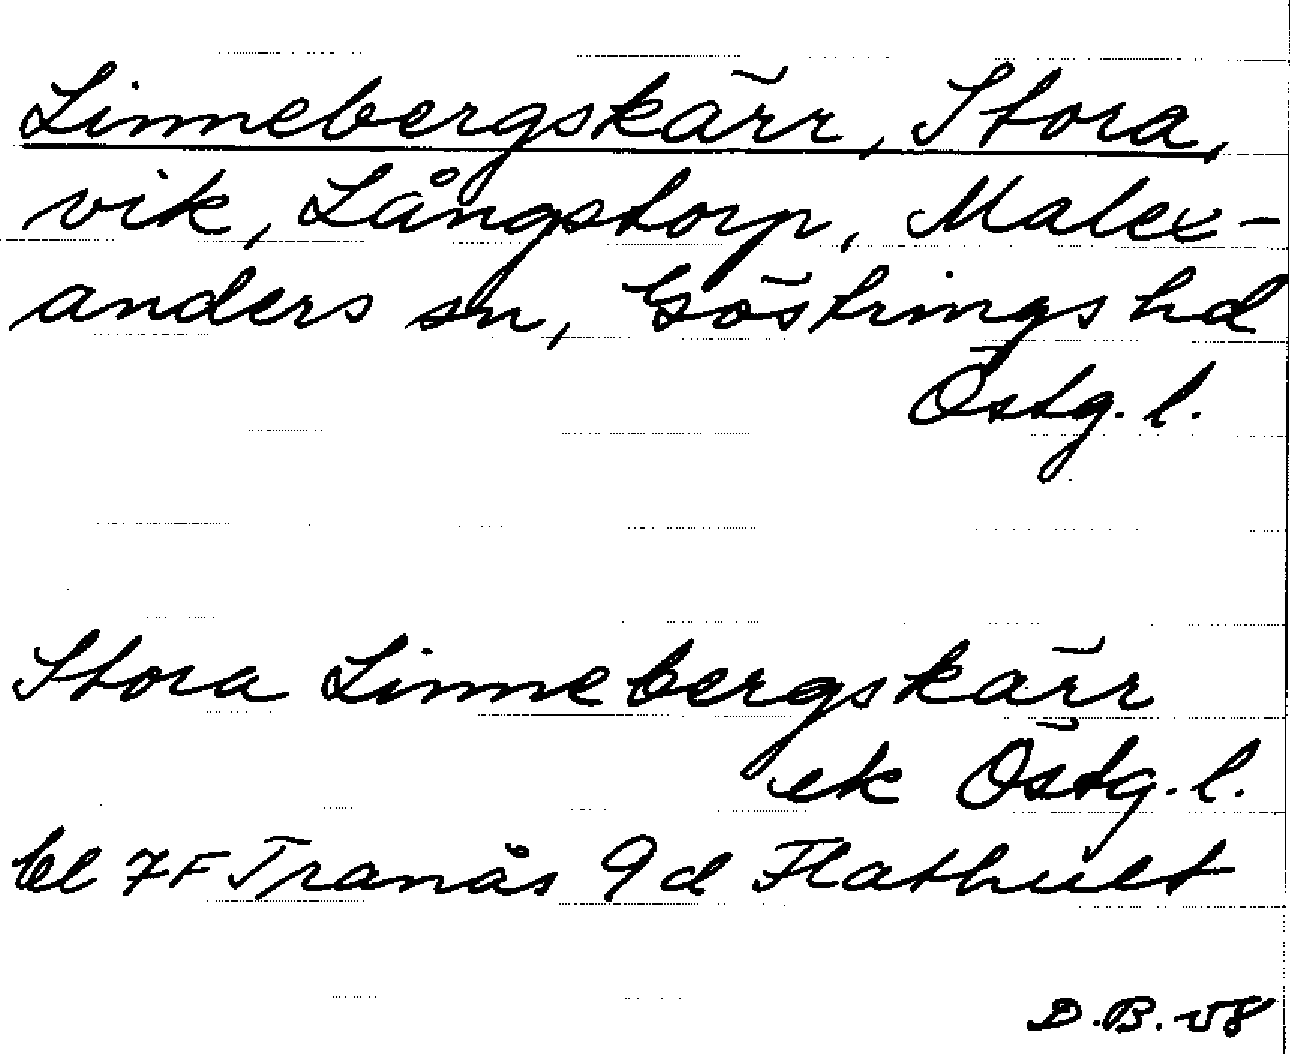 Linnebergskärr, Stora,
vik, Långstorp, Malex-
anders sn, Göstrings hd
Östg. l.
Stora Linnebergskärr
ek Östg. l.
bl 7F Tranås 9d Flathult
D.B. 58